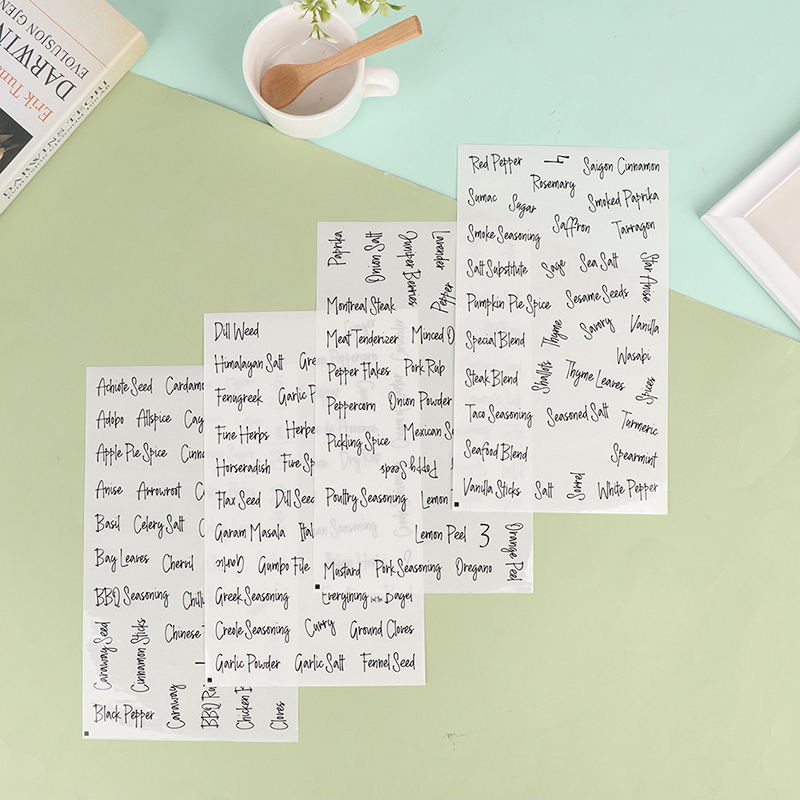 Erik Tuna
DARWIN
EVOLUSJON GJEN
Red Pepper 4 Saigon Cinnamon
Rosemary
Sumac Sugar Smoked Paprika
Smoke Seasoning Saffron Tarragon
Salt Substitute Sage Sea Salt Star Anise
Pumpkin Pie Spice Sesame Seeds
Special Blend Thyme Savory Vanilla
Wasabi
Steak Blend Shallots Thyme Leaves Spices
Taco Seasoning Seasoned Salt Turmeric
Seafood Blend Spearmint
Vanilla Sticks Salt Sorrel White Pepper
Paprika Onion Salt Juniper Berries Lavender
Pepper
Montreal Steak
Meat Tenderizer Minced O
Pepper Flakes Pork Rub
Peppercorn Onion Powder
Pickling Spice Mexican S
Poppy Seeds
Poultry Seasoning Lemon
Lemon Peel 3 Orange Peel
Mustard Pork Seasoning Oregano
Dill Weed
Himalayan Salt Gre
Fenugreek Garlic P
Fine Herbs Herbe
Horseradish Fire Sp
Flax Seed Dill Seed
Garam Masala Ital
Garlic Gumbo File
Greek Seasoning Everything but the Bagel
Creole Seasoning Curry Ground Cloves
Garlic Powder Garlic Salt Fennel Seed
Achiote Seed Cardamo
Adobo Allspice Cay
Apple Pie Spice Cinn
Anise Arrowroot C
Basil Celery Salt C
Bay Leaves Chervil
BBQ Seasoning Chili
Caraway Seed Cinnamon Sticks Chinese
Black Pepper Caraway BBQ Ru Chicken Cloves